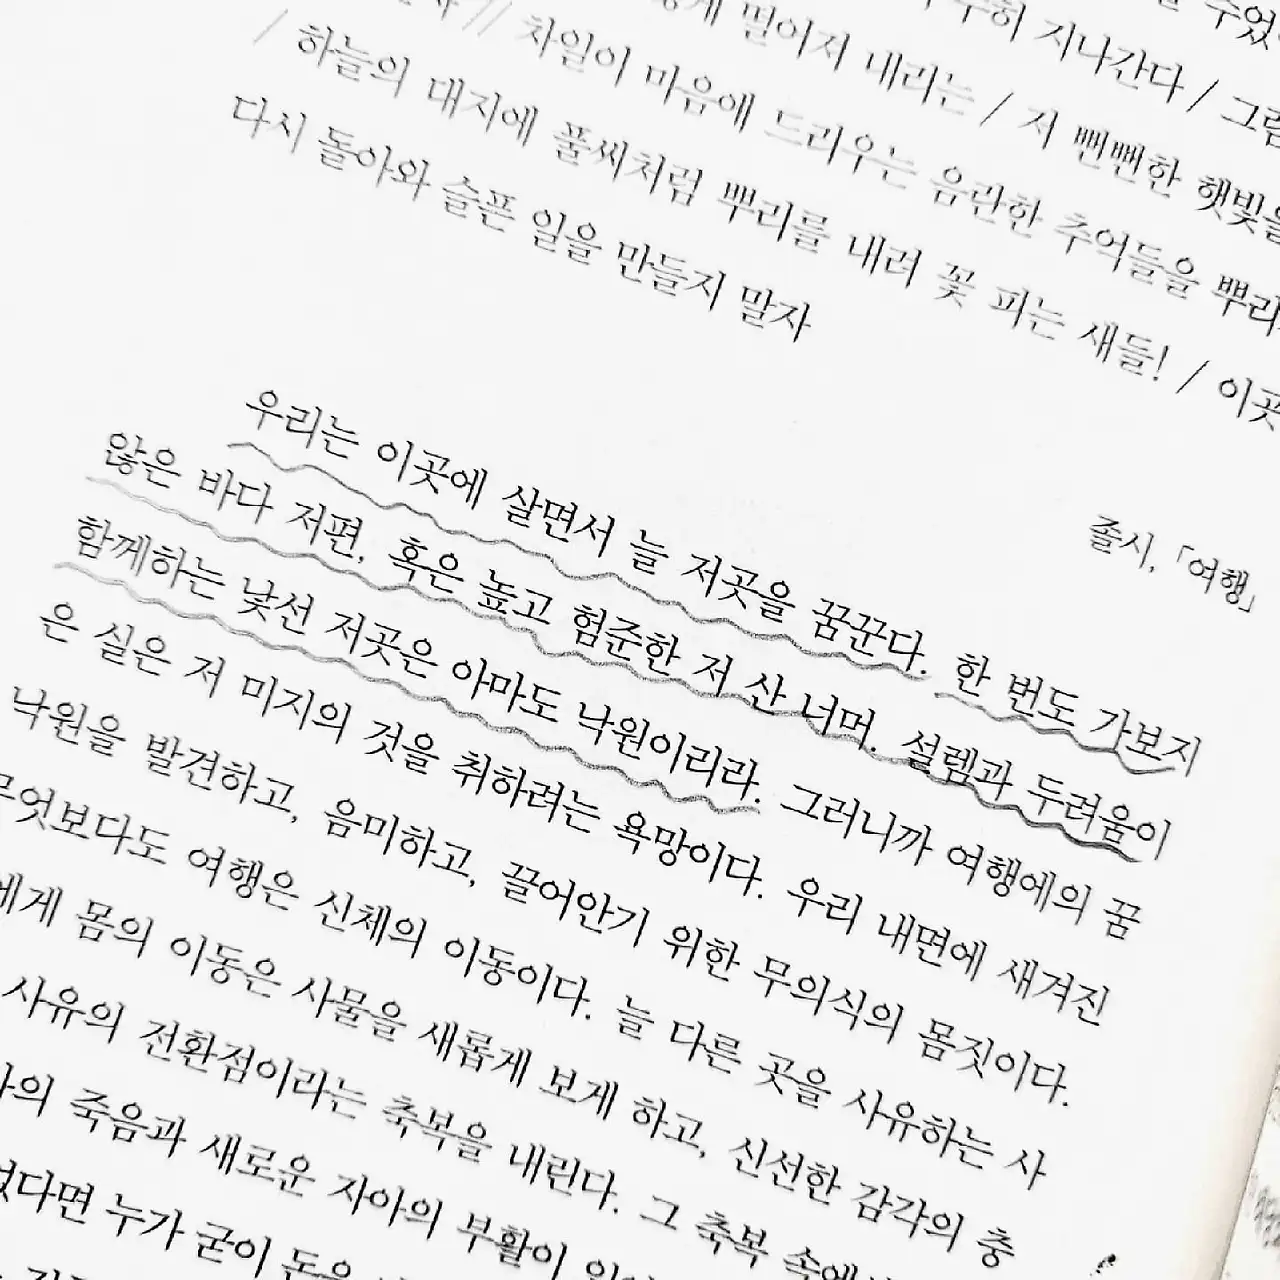 수었
떨어져 내리는 / 저 뻔뻔한 햇빛을
지나간다 / 그럼
/ 하늘의 대지에 풀씨처럼 뿌리를 내려 꽃 피는 새들! / 이곳
// 차일이 마음에 드리우는 음란한 추억들을 뿌리
다시 돌아와 슬픈 일을 만들지 말자
졸시, 「여행」
우리는 이곳에 살면서 늘 저곳을 꿈꾼다. 한 번도 가보지
않은 바다 저편, 혹은 높고 험준한 저 산 너머. 설렘과 두려움이
함께하는 낯선 저곳은 아마도 낙원이리라. 그러니까 여행에의 꿈
은 실은 저 미지의 것을 취하려는 욕망이다. 우리 내면에 새겨진
낙원을 발견하고, 음미하고, 끌어안기 위한 무의식의 몸짓이다.
무엇보다도 여행은 신체의 이동이다. 늘 다른 곳을 사유하는 사
에게 몸의 이동은 사물을 새롭게 보게 하고, 신선한 감각의 충
사유의 전환점이라는 축복을 내린다. 그 축복 속에
의 죽음과 새로운 자아의 부활이
다면 누가 굳이 돈을